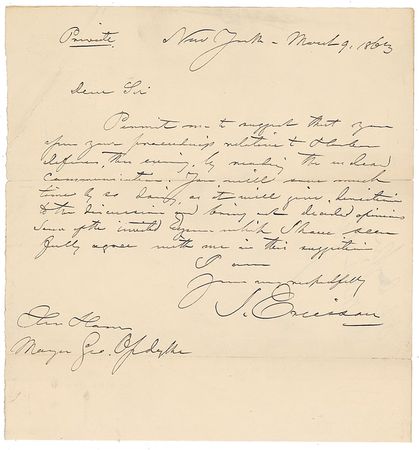 Private. New York - March 9. 1863
Dear Sir
Permit me to suggest that you
open your proceedings relative to Harbor
defences, this evening, by reading the enclosed
communication. You will save much
time by so doing, as it will give direction
to the discussion and bring out decided opinions
fully agree with me in this suggestion
I am
Yours very respectfully
J. Ericsson
Mayor Geo. Opdyke